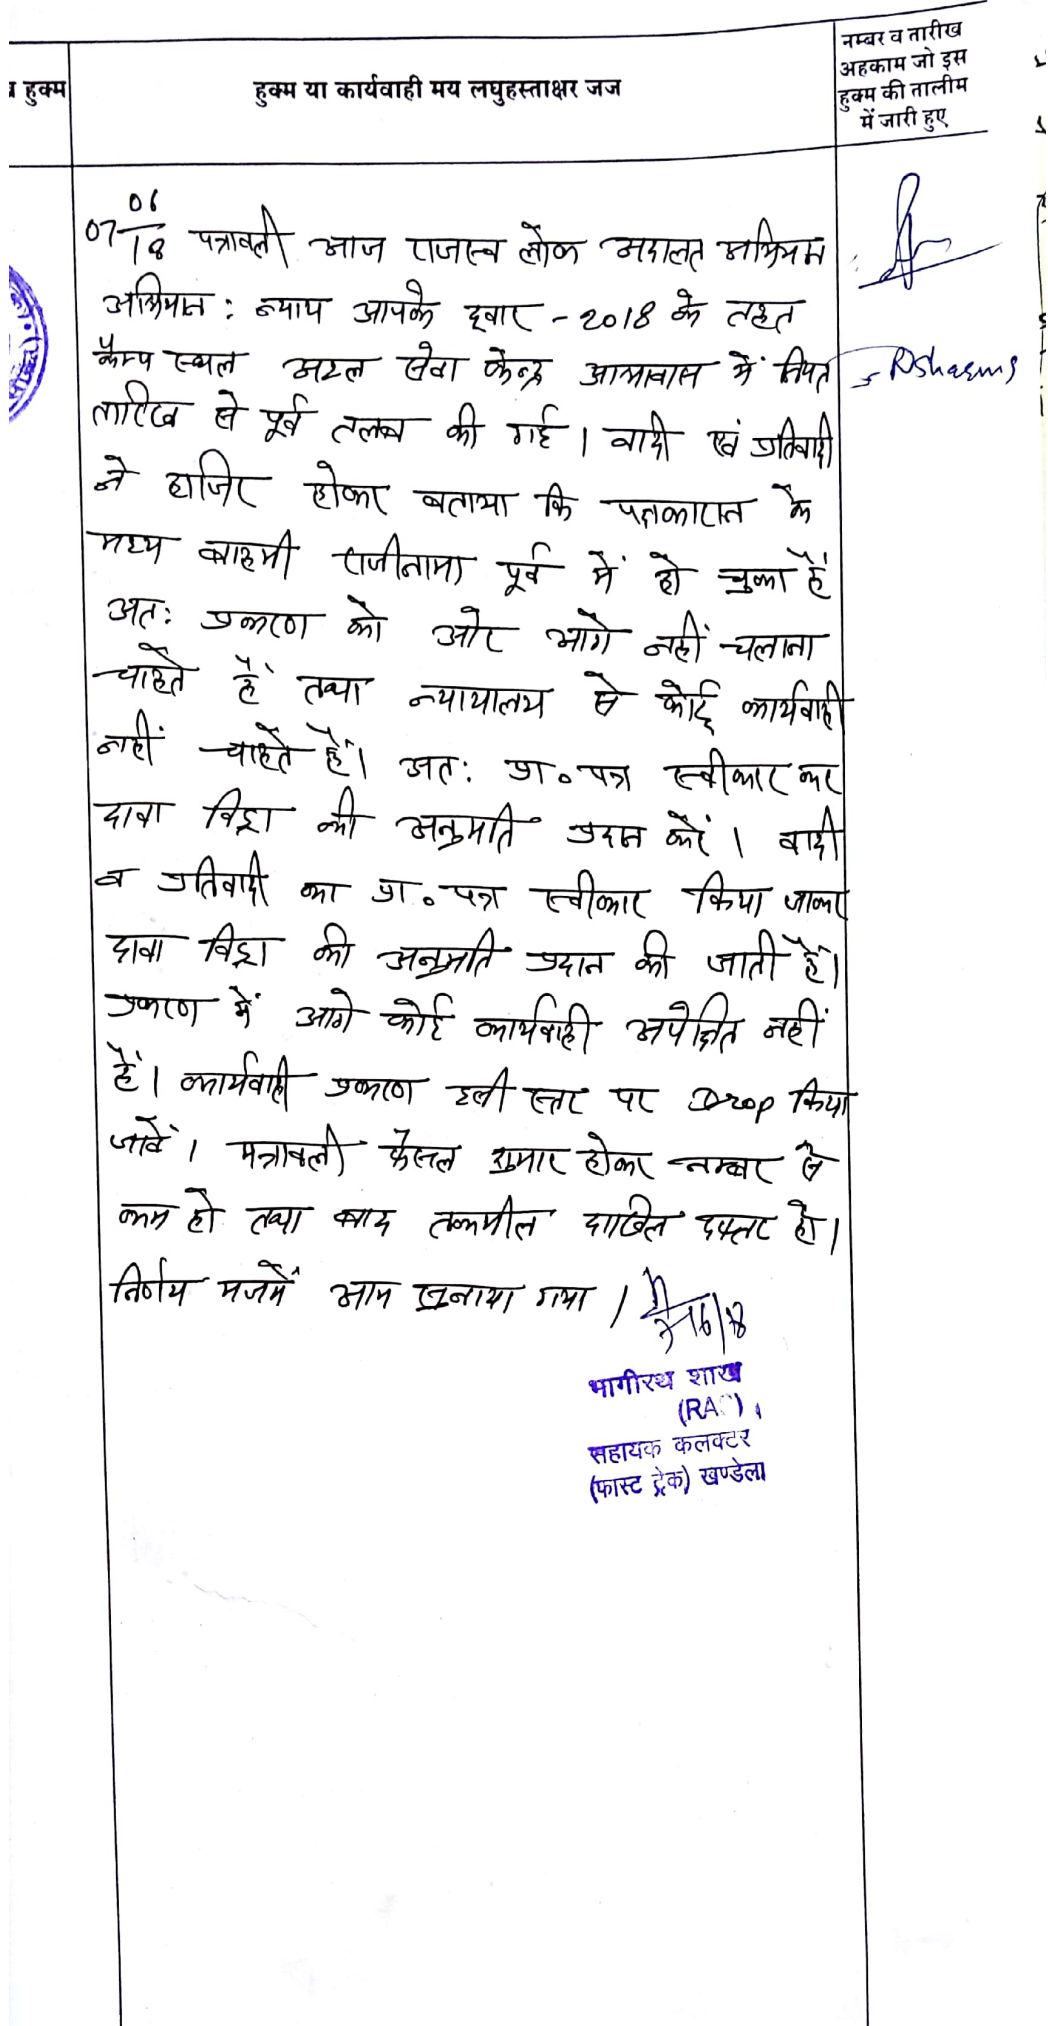 हुक्म
हुक्म या कार्यवाही मय लघुहस्ताक्षर जज
नम्बर व तारीख
अहकाम जो इस
हुक्म की तालीम
में जारी हुए
07/06/18 पत्रावली आज राजस्व लोक अदालत अभियान
अभियान : न्याय आपके द्वार - 2018 के तहत
कैम्प स्थल अटल सेवा केन्द्र आभावास में नियत
तारिख से पूर्व तलब की गई। वादी एवं प्रतिवादी
ने हाजिर होकर बताया कि पक्षकारान के
मध्य बाहमी राजीनामा पूर्व में हो चुका हैं
अतः प्रकरण को ओर आगे नहीं चलाना
चाहते हैं तथा न्यायालय से कोई कार्यवाही
नहीं चाहते हैं। अतः प्रा॰ पत्र स्वीकार कर
दावा विड्रा की अनुमति प्रदान करें। वादी
व प्रतिवादी का प्रा॰ पत्र स्वीकार किया जाकर
दावा विड्रा की अनुमति प्रदान की जाती हैं।
प्रकरण में आगे कोई कार्यवाही अपेक्षित नहीं
हैं। कार्यवाही प्रकरण इसी स्तर पर Drop किया
जावें। पत्रावली फैसल शुमार होकर नम्बर से
कम हो तथा बाद तकमील दाखिल दफ्तर हो।
निर्णय मजमें आम सुनाया गया।
भागीरथ शाख
(RA
सहायक कलक्टर
(फास्ट ट्रेक) खण्डेला